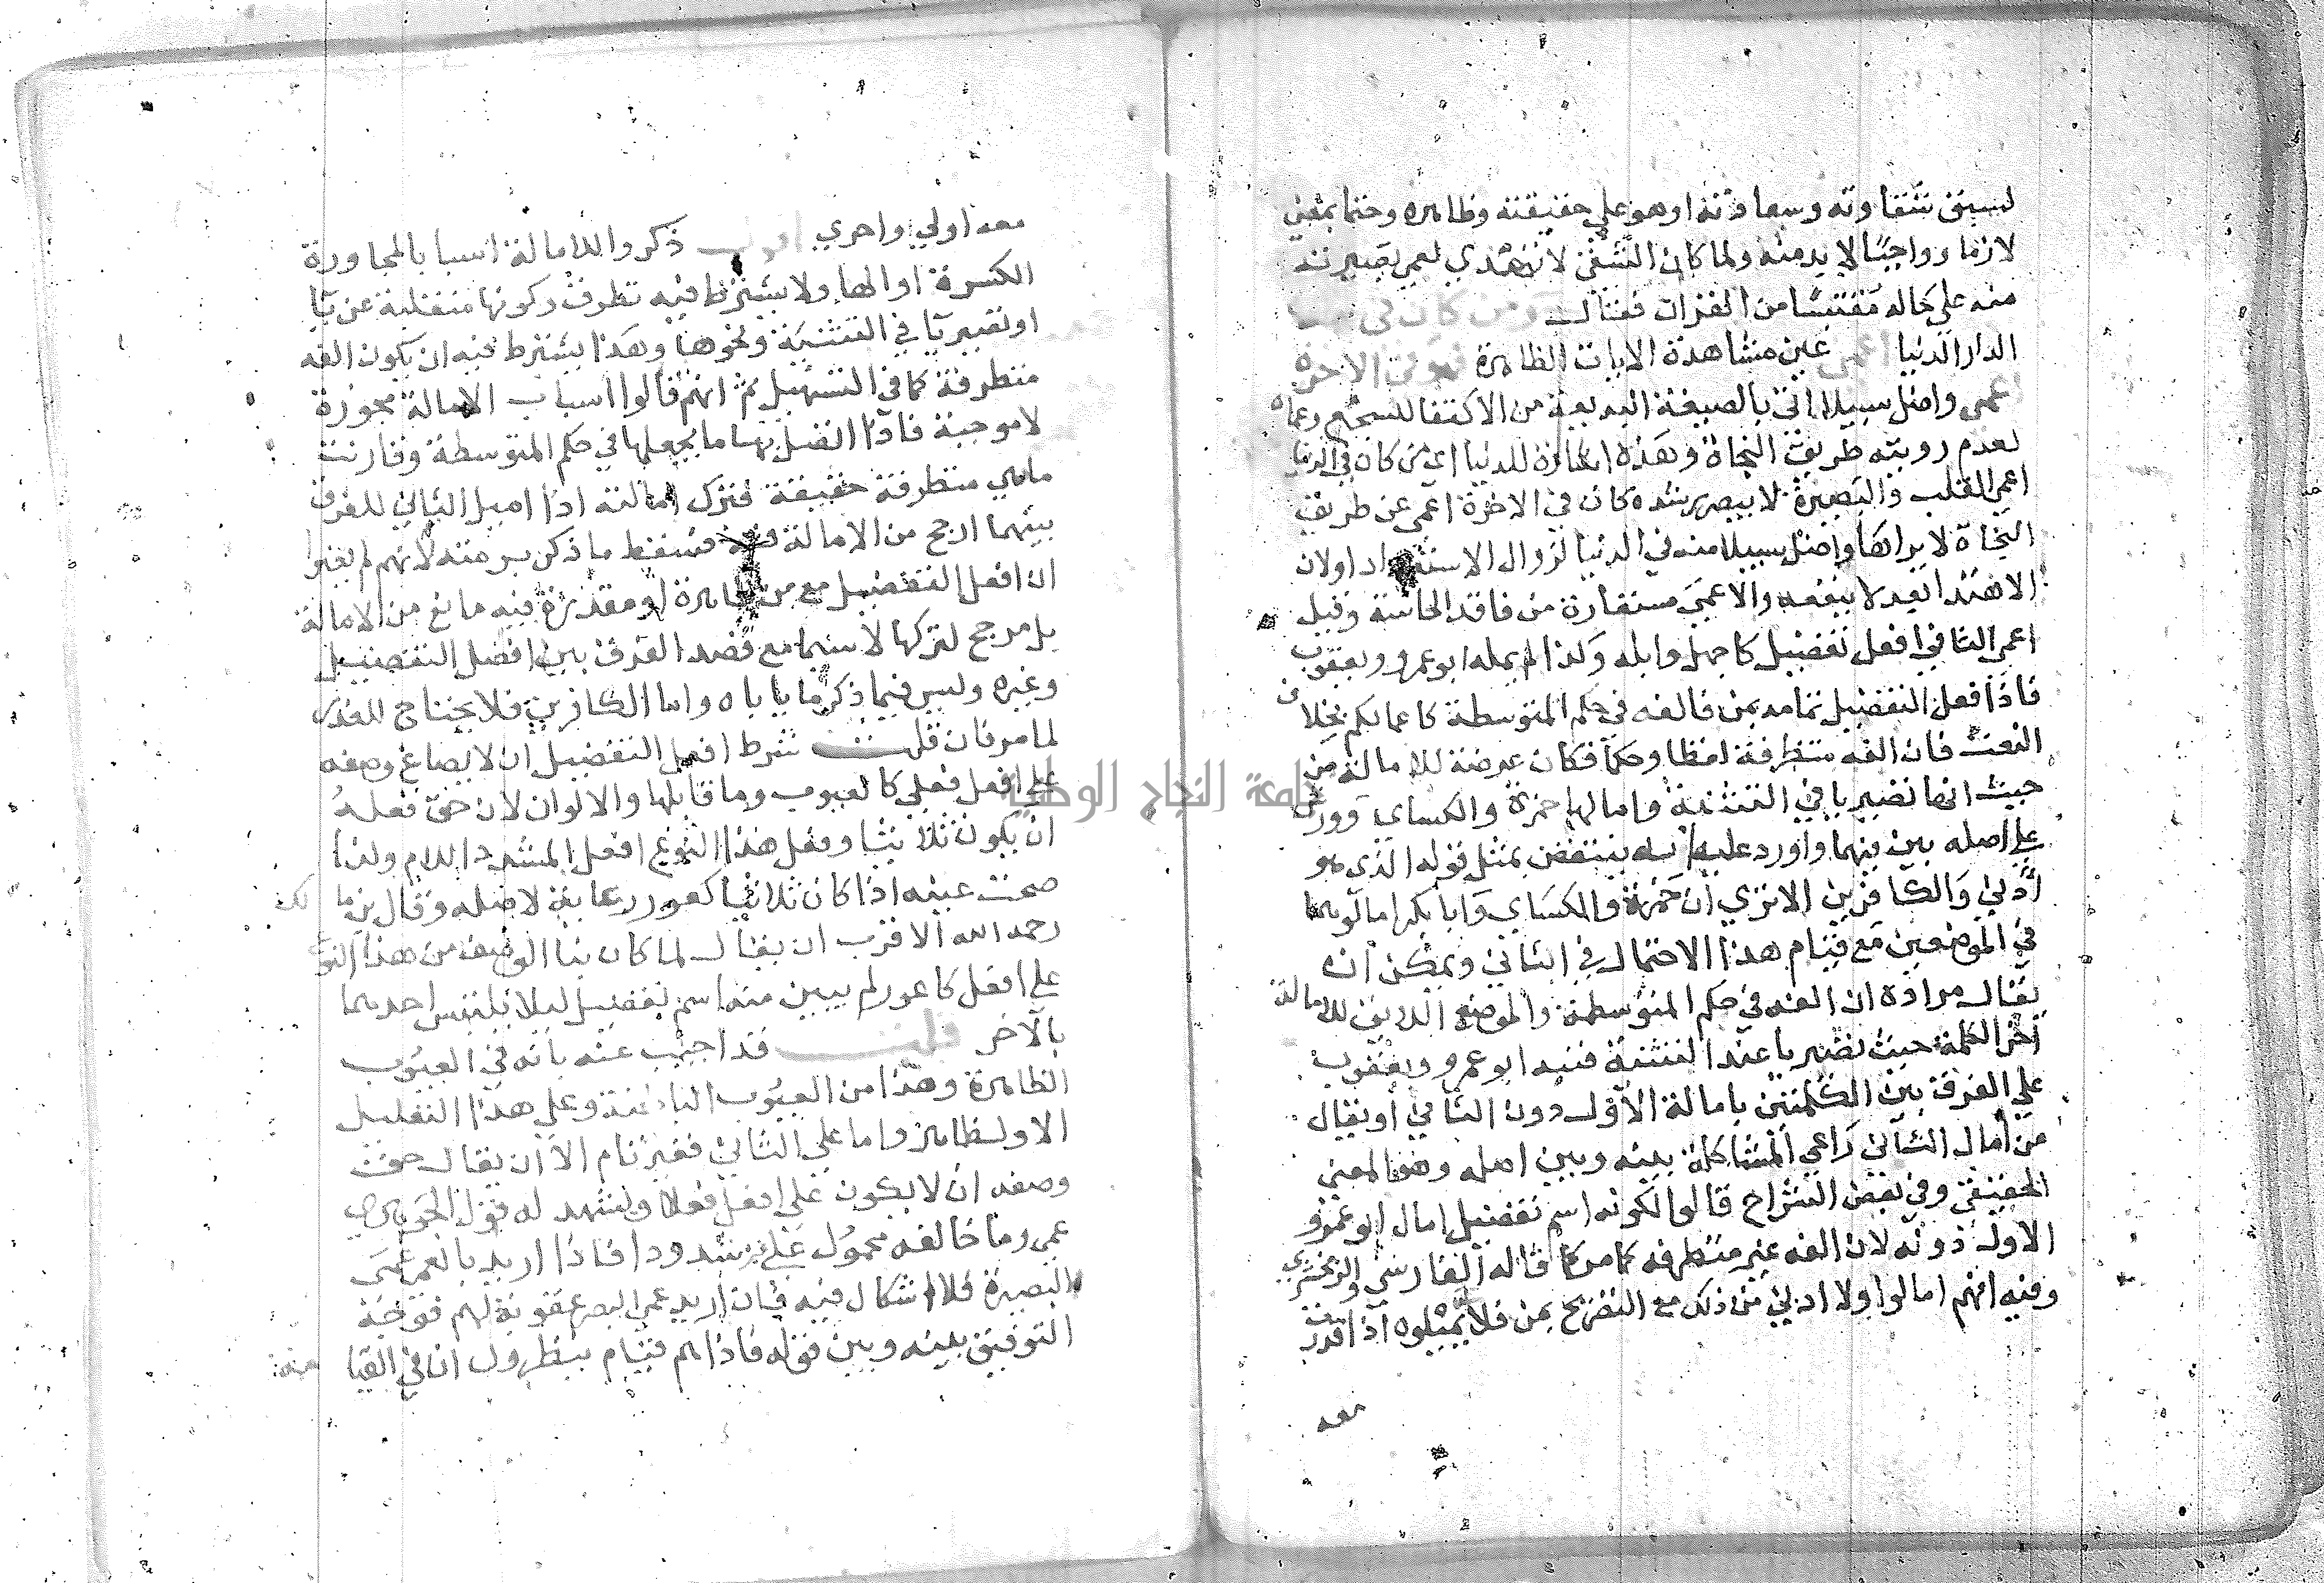 لسبق شقاوته وسعادته او هو علي حقيقته وظاهره وحتما بمعني
لازما وواجبا لا بد منه ولما كان الشقي لا يهتدي لعمي بصيرته
منه علي حاله مقتبسا من القران فقال ومن كان في هذه
الدار الدنيا اعمى عن مشاهدة الايات الظاهرة فهو في الاخرة
اعمى واضل سبيلا اتي بالصيغة البديعة من الاكتفا للسجع وعماه
لعدم رويته طريق النجاة وهذه اشارة للدنيا اي من كان في الدنيا
اعمي القلب والبصيرة لا يبصر رشده كان في الاخرة اعمى عن طريق
النجاة لا يراها واضل سبيلا منه في الدنيا لزوال الاستعداد او لان
الاهتدا بعد لا ينفعه والاعمى مستعارة من فاقد الحاسة وقيل
اعمي الثاني افعل تفضيل كاجهل وابله ولذا لم يمله ابو عمرو ويعقوب
فاذا افعل التفضيل تمامه بمن فالفه في حكم المتوسطة كاعمالكم بخلاف
النعت فان الفه متطرفة لفظا وحكما فكان عرضة للامالة من
حيث انها تصير يا في التثنية وامالها حمزة والكساي وورش
علي اصله بين بينهما واورد عليه انه ينتقض بمثل قوله الذي هو
ادني والكافرين الا تري ان حمزة والكساي وابا بكر امالوهما
في الموضعين مع قيام هذا الاحتمال في الثاني ويمكن انه
يقال مراده ان الفه في حكم المتوسطة والموضع اللايق للامالة
اخر الكلمة حيث تصير يا عند التثنية فنبه ابو عمرو ويعقوب
علي الفرق بين الكلمتين بامالة الاول دون الثاني او يقال
من امال الثاني راعي المشاكلة بينه وبين اصله وهو المعني
الحقيقي وفي بعض الشراح قالوا لكونه اسم تفضيل امال ابو عمرو
الاول دونه لان الفه غير متطرفه كما مر كما قاله الفارسي والزمخشري
وفيه انهم امالوا ولا ادني من ذلك مع التصريح بمن فلا يميلوه اذا قدرت
معه
معه اولي واحري اقول ذكروا للامالة اسبابا لمجاورة
الكسرة او الها ولا يشترط فيه تطرف وكونها منقلبة عن يا
او تصير يا في التثنية ونحوها وهذا يشترط فيه ان يكون الفه
متطرفة كما في التسهيل ثم انهم قالوا اسباب الامالة مجوزة
لا موجبة فاذا اتصل بها ما يجعلها في حكم المتوسطة وقارنت
ماهي متطرفة حقيقة فترك امالته اذا اميل الثاني للفرق
بينهما ارجح من الامالة فسقط ما ذكر برمته لانهم لم يعنوا
ان افعل التفضيل مع من ظاهرة او مقدرة فيه مانع من الامالة
بل مرجح لتركها لا سيما مع قصد الفرق بين افعل التفضيل
وغيره وليس فيما ذكر ما يأباه واما الكافرين فلا يحتاج للعذر
لما مر فان قلت شرط افعل التفضيل ان لا يصاغ وصفه
علي افعل فعلي كالعيوب وما قابلها والالوان لان حق فعله
ان يكون ثلاثيا وفعل هذا النوع افعل المشدد اللام ولذا
صحت عينه اذا كان ثلاثيا كعور رعاية لاصله وقال بن ما لك
رحمه الله الاقرب ان يقال لما كان بنا الوصف من هذا النوع
علي افعل كاعور لم يبين منه اسم تفضيل ليلا يلتبس احدهما
بالاخر قلت قد اجيب عنه بانه في العيوب
الظاهرة وهذا من العيوب الباطنة وعلي هذا التعليل
الاول ظاهر واما علي الثاني فغير تام الا ان يقال حق
وصفه ان لا يكون علي افعل فعلا ويشهد له قول الجوهري
عمى وما خالفه محمول علي شدودا فاذا اريد بالعمي عمى
البصيرة فلا اشكال فيه فان اريد عمي البصر عقوبة لهم فوجه
التوفيق بينه وبين قوله فاذا هم قيام ينظرون ان في القيا
مة
جامعة النجاح الوطنية